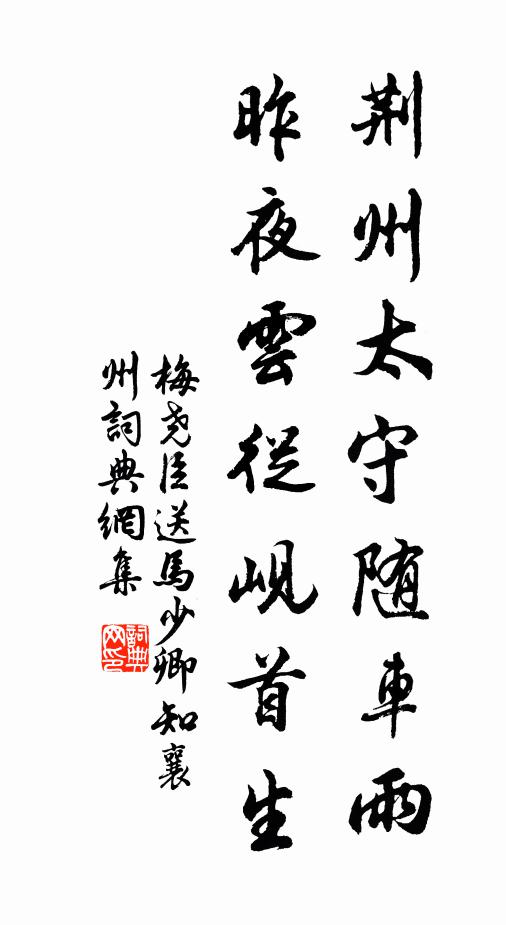 荆州太守随車雨
昨夜雲從峴首生
梅堯臣送馬少卿知襄
州詞典網集
詞典
网印